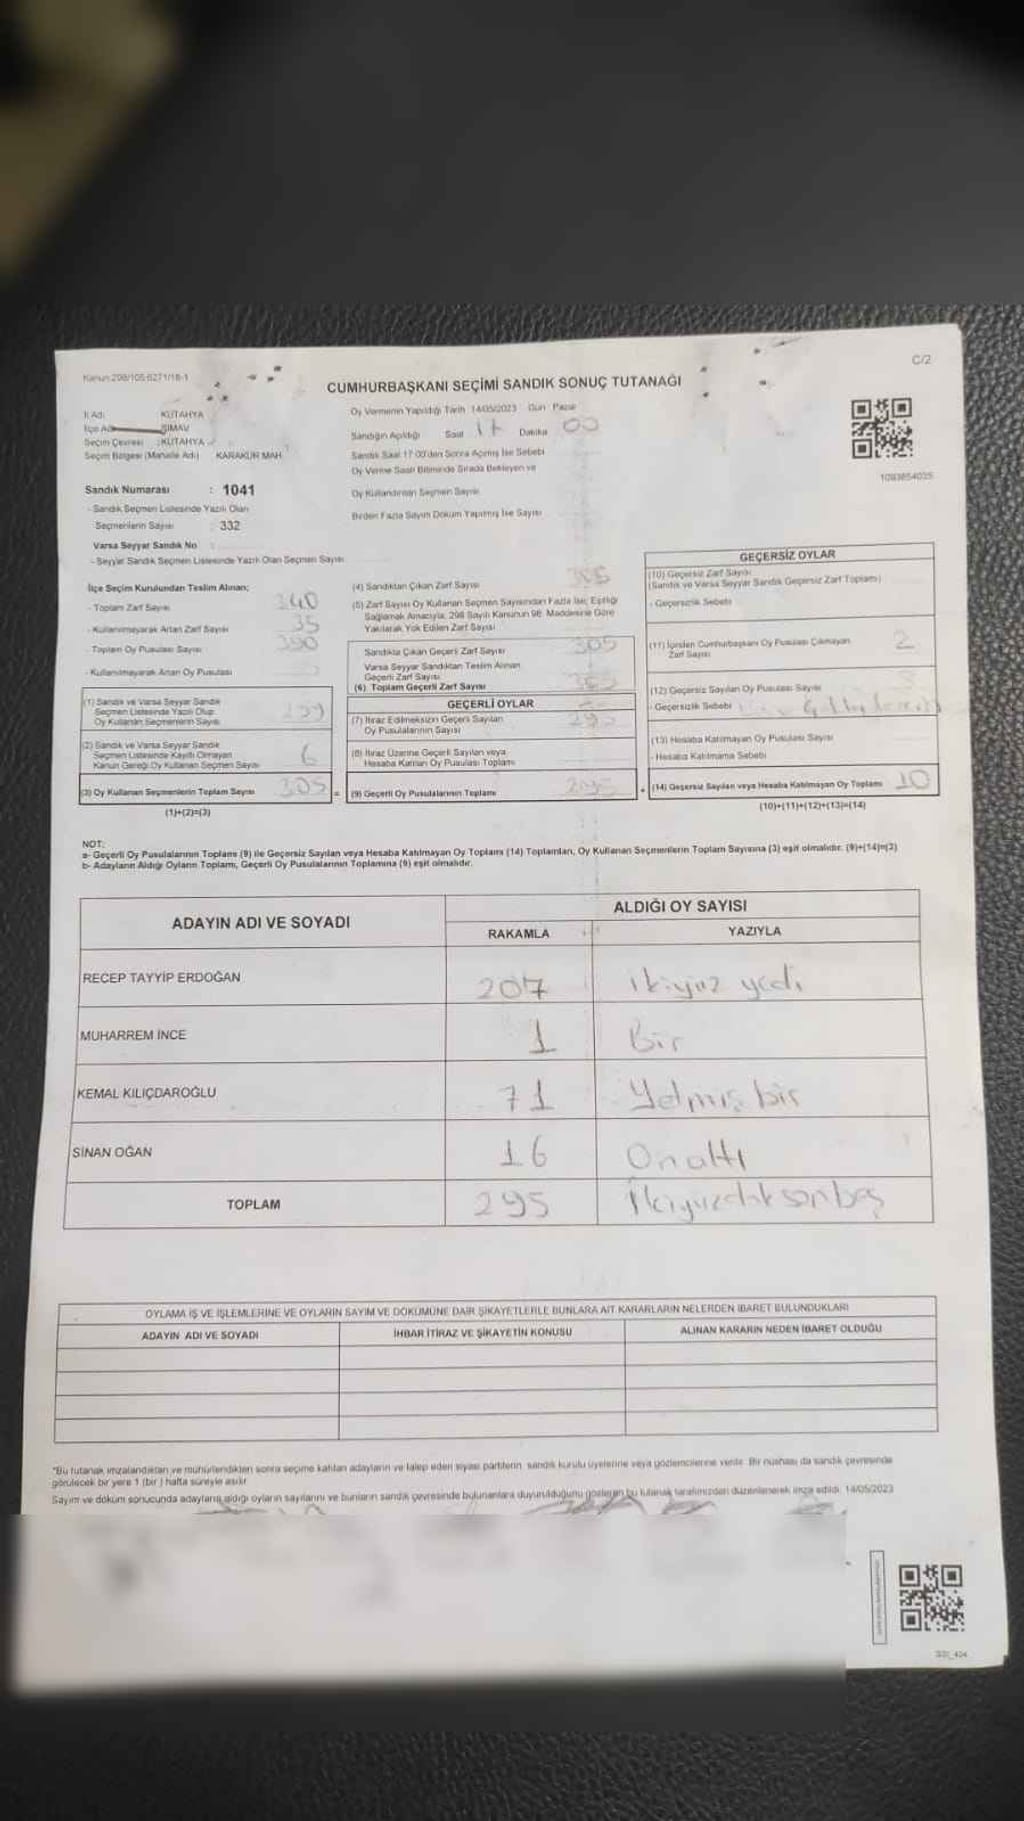 Kanun:298/105-6271/18-1
C/2
CUMHURBAŞKANI SEÇİMİ SANDIK SONUÇ TUTANAĞI
İl Adı : KÜTAHYA
İlçe Adı SİMAV
Seçim Çevresi : KÜTAHYA
Seçim Bölgesi (Mahalle Adı) KARAKÜR MAH.
Sandık Numarası : 1041
- Sandık Seçmen Listesinde Yazılı Olan
Seçmenlerin Sayısı : 332
Varsa Seyyar Sandık No :
- Seyyar Sandık Seçmen Listesinde Yazılı Olan Seçmen Sayısı
Oy Vermenin Yapıldığı Tarih 14/05/2023 Gün Pazar
Sandığın Açıldığı Saat 17 Dakika 00
Sandık Saat 17:00'den Sonra Açılmış İse Sebebi
Oy Verme Saati Bitiminde Sırada Bekleyen ve
Oy Kullandırılan Seçmen Sayısı
Birden Fazla Sayım Döküm Yapılmış İse Sayısı
1093654035
İlçe Seçim Kurulundan Teslim Alınan;
- Toplam Zarf Sayısı 340
- Kullanılmayarak Artan Zarf Sayısı 35
- Toplam Oy Pusulası Sayısı
- Kullanılmayarak Artan Oy Pusulası
(1) Sandık ve Varsa Seyyar Sandık
Seçmen Listesinde Yazılı Olup
Oy Kullanan Seçmenlerin Sayısı 299
(2) Sandık ve Varsa Seyyar Sandık
Seçmen Listesinde Kayıtlı Olmayan
Kanun Gereği Oy Kullanan Seçmen Sayısı 6
(3) Oy Kullanan Seçmenlerin Toplam Sayısı 305 =
(1)+(2)=(3)
(4) Sandıktan Çıkan Zarf Sayısı 305
(5) Zarf Sayısı Oy Kullanan Seçmen Sayısından Fazla İse; Eşitliği
Sağlamak Amacıyla, 298 Sayılı Kanunun 98. Maddesine Göre
Yakılarak Yok Edilen Zarf Sayısı
Sandıkta Çıkan Geçerli Zarf Sayısı 305
Varsa Seyyar Sandıktan Teslim Alınan
Geçerli Zarf Sayısı
(6) Toplam Geçerli Zarf Sayısı 305
GEÇERLİ OYLAR
(7) İtiraz Edilmeksizin Geçerli Sayılan
Oy Pusulalarının Sayısı 295
(8) İtiraz Üzerine Geçerli Sayılan veya
Hesaba Katılan Oy Pusulası Toplamı
(9) Geçerli Oy Pusulalarının Toplamı 295 +
GEÇERSİZ OYLAR
(10) Geçersiz Zarf Sayısı
(Sandık ve Varsa Seyyar Sandık Geçersiz Zarf Toplamı)
- Geçersizlik Sebebi
(11) İçinden Cumhurbaşkanı Oy Pusulası Çıkmayan
Zarf Sayısı 2
(12) Geçersiz Sayılan Oy Pusulası Sayısı
- Geçersizlik Sebebi
(13) Hesaba Katılmayan Oy Pusulası Sayısı
- Hesaba Katılmama Sebebi
(14) Geçersiz Sayılan veya Hesaba Katılmayan Oy Toplamı 10
(10)+(11)+(12)+(13)=(14)
NOT:
a- Geçerli Oy Pusulalarının Toplamı (9) ile Geçersiz Sayılan veya Hesaba Katılmayan Oy Toplamı (14) Toplamları, Oy Kullanan Seçmenlerin Toplam Sayısına (3) eşit olmalıdır. (9)+(14)=(3)
b- Adayların Aldığı Oyların Toplamı, Geçerli Oy Pusulalarının Toplamına (9) eşit olmalıdır.
ADAYIN ADI VE SOYADI
ALDIĞI OY SAYISI
RAKAMLA YAZIYLA
RECEP TAYYİP ERDOĞAN 207 ikiyüz yedi
MUHARREM İNCE 1 Bir
KEMAL KILIÇDAROĞLU 71 Yetmiş bir
SİNAN OĞAN 16 On altı
TOPLAM 295 İkiyüzdoksanbeş
OYLAMA İŞ VE İŞLEMLERİNE VE OYLARIN SAYIM VE DÖKÜMÜNE DAİR ŞİKAYETLERLE BUNLARA AİT KARARLARIN NELERDEN İBARET BULUNDUKLARI
ADAYIN ADI VE SOYADI İHBAR İTİRAZ VE ŞİKAYETİN KONUSU ALINAN KARARIN NEDEN İBARET OLDUĞU
*Bu tutanak imzalandıktan ve mühürlendikten sonra seçime katılan adayların ve talep eden siyasi partilerin sandık kurulu üyelerine veya gözlemcilerine verilir. Bir nüshası da sandık çevresinde
görülecek bir yere 1 (bir ) hafta süreyle asılır.
Sayım ve döküm sonucunda adayların aldığı oyların sayılarını ve bunların sandık çevresinde bulunanlara duyurulduğunu gösteren bu tutanak tarafımızdan düzenlenerek imza edildi. 14/05/2023